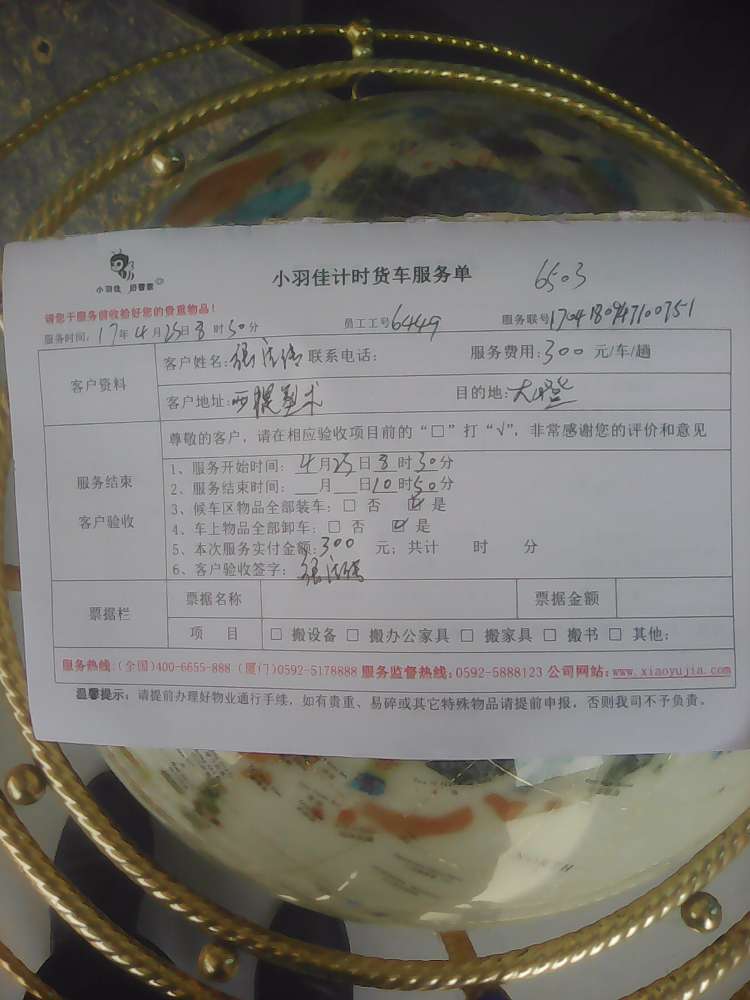 小羽佳计时货车服务单
6503
小羽佳
请您于服务前收捡好您的贵重物品!
服务时间: 17年4月25日8时30分 员工工号6449 服务联号
客户资料
客户姓名: 联系电话: 服务费用:300 元/车/趟
客户地址: 目的地:
尊敬的客户,请在相应验收项目前的“□”打“√”,非常感谢您的评价和意见
服务结束
客户验收
1、服务开始时间: 4月25日8时30分
2、服务结束时间: __月__日10时50分
3、候车区物品全部装车: □ 否 ☑ 是
4、车上物品全部卸车: □ 否 ☑ 是
5、本次服务实付金额:300 元; 共计 时 分
6、客户验收签字:
票据栏
票据名称 票据金额
项 目 □ 搬设备 □ 搬办公家具 □ 搬家具 □ 搬书 □ 其他:
服务热线:(全国)400-6655-888 (厦门)0592-5178888 服务监督热线:0592-5888123 公司网站:www.xiaoyujia.com
温馨提示: 请提前办理好物业通行手续, 如有贵重、易碎或其它特殊物品请提前申报, 否则我司不予负责。